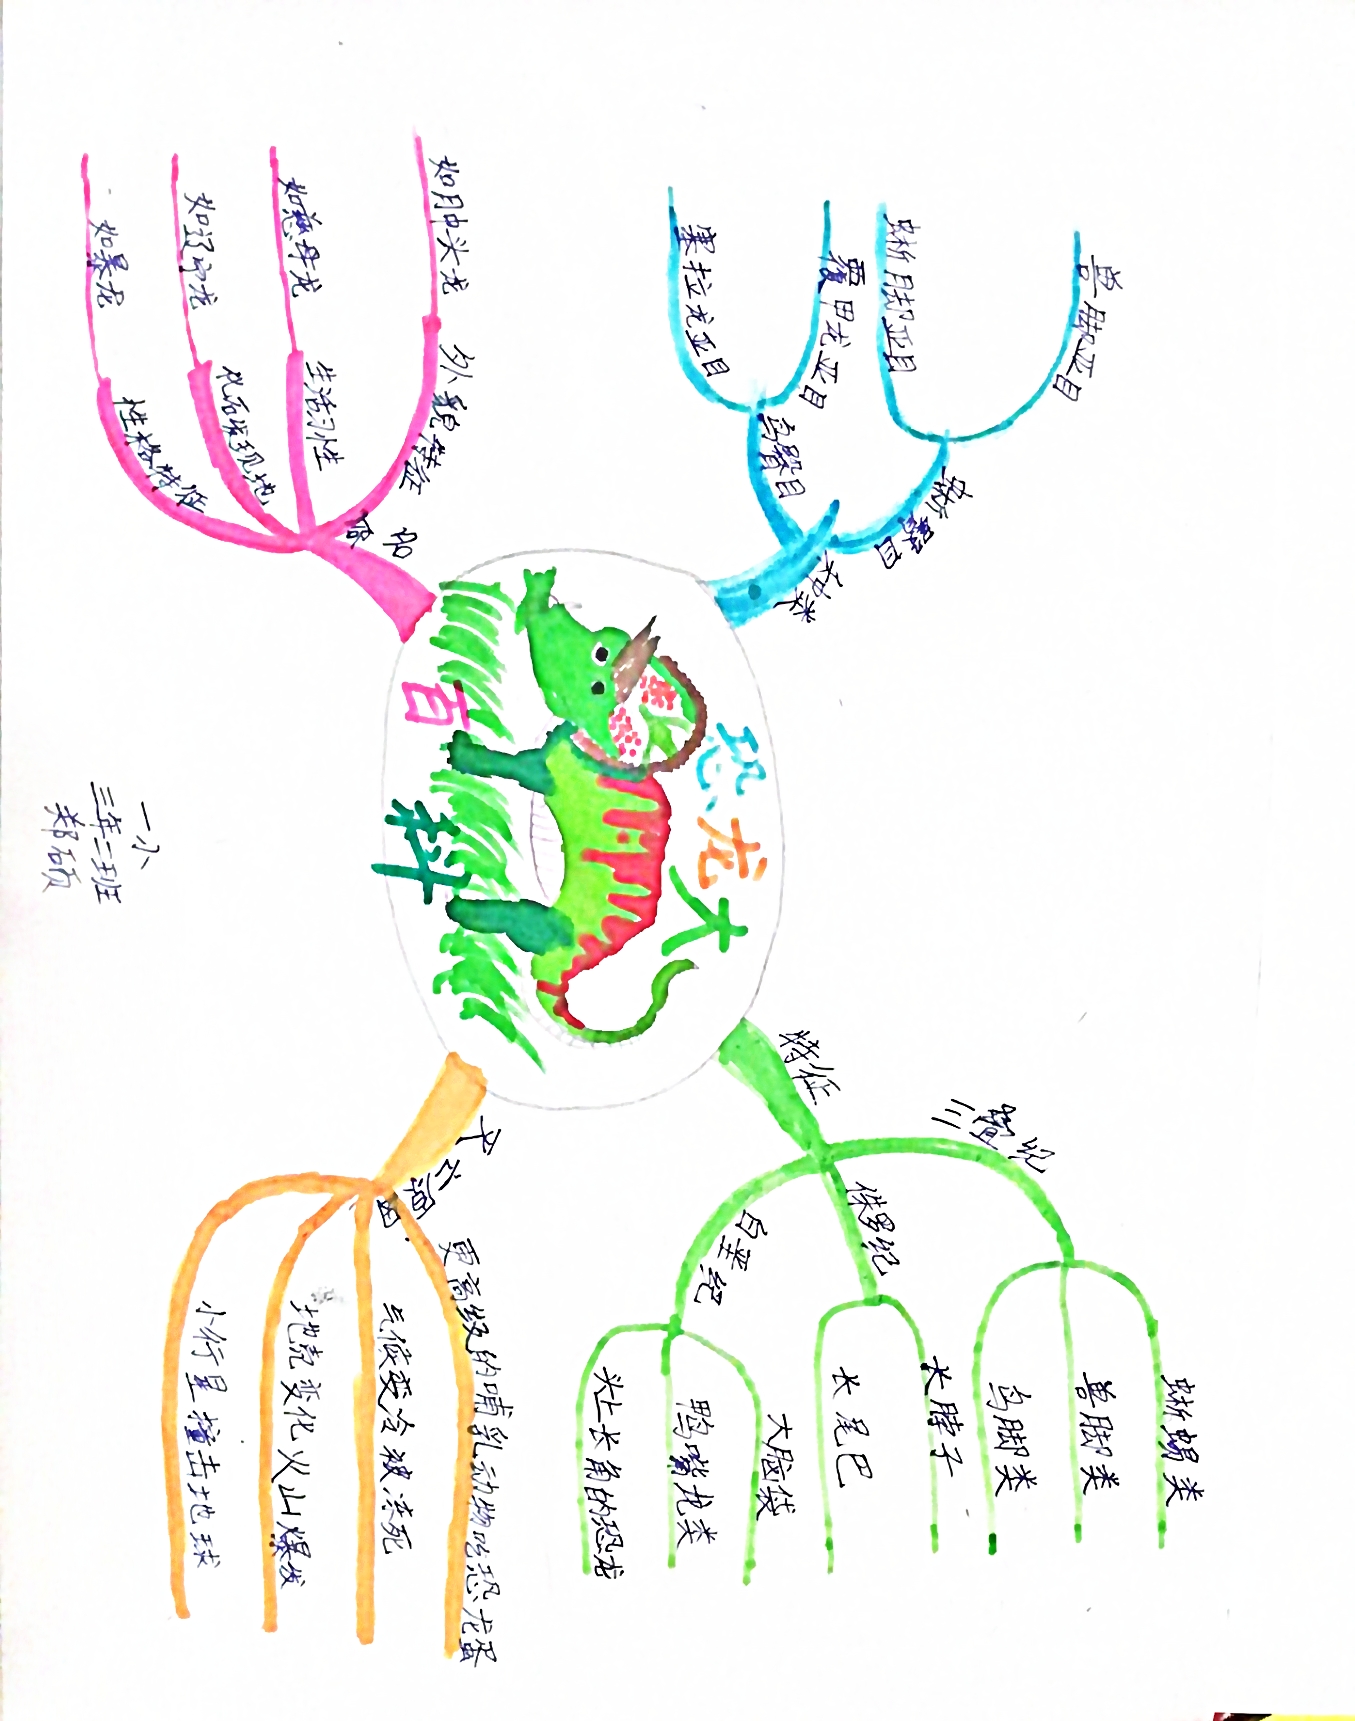 恐龙大
百科
种类
蜥臀目
兽脚亚目
蜥脚亚目
鸟臀目
覆甲龙亚目
塞拉龙亚目
特征
三叠纪
蜥蜴类
兽脚类
鸟脚类
侏罗纪
长脖子
长尾巴
白垩纪
大脑袋
鸭嘴龙类
头上长角的恐龙
命名
外貌特征
如肿头龙
生活习性
如慈母龙
化石发现地
如辽宁龙
性格特征
如暴龙
灭亡原因
更高级的哺乳动物吃恐龙蛋
气候变冷被冻死
地壳变化火山爆发
小行星撞击地球
一小
三年二班
郑硕